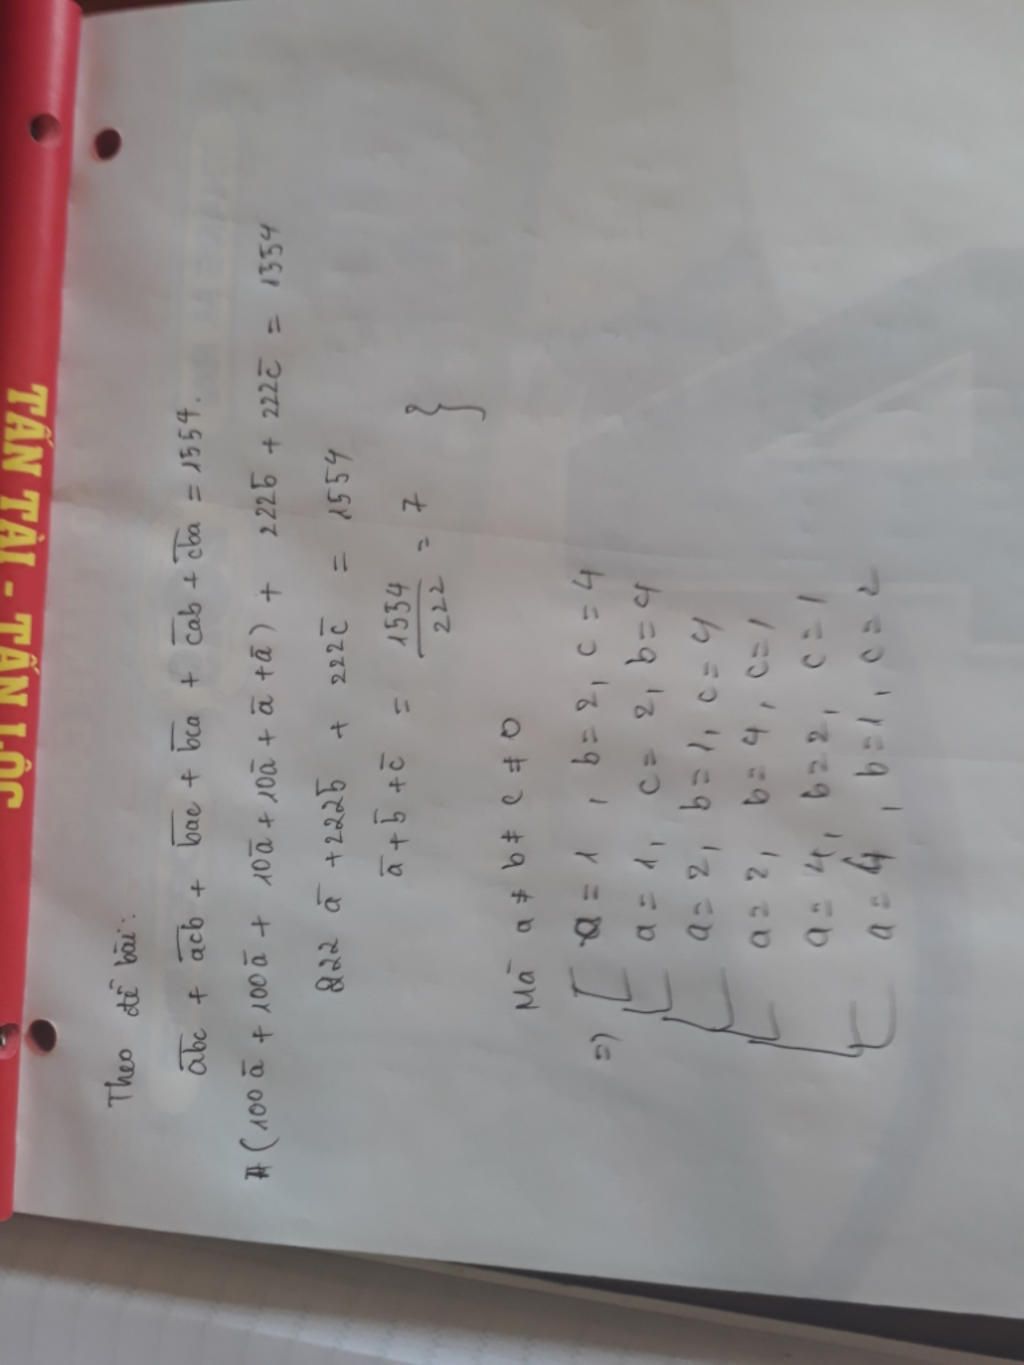 TẤN TÀI - TẤN LỘC
Theo đề bài:
a̅b̅c̅ + a̅c̅b̅ + b̅a̅c̅ + b̅c̅a̅ + c̅a̅b̅ + c̅b̅a̅ = 1554.
(100a̅ + 100a̅ + 10a̅ + 10a̅ + a̅ + a̅) + 222b̅ + 222c̅ = 1554
222 a̅ + 222b̅ + 222c̅ = 1554
a̅ + b̅ + c̅ = 1554/222 = 7 }
Mà a ≠ b ≠ c ≠ 0
=> [ a = 1, b = 2, c = 4
[ a = 1, c = 2, b = 4
[ a = 2, b = 1, c = 4
[ a = 2, b = 4, c = 1
[ a = 4, b = 2, c = 1
[ a = 4, b = 1, c = 2